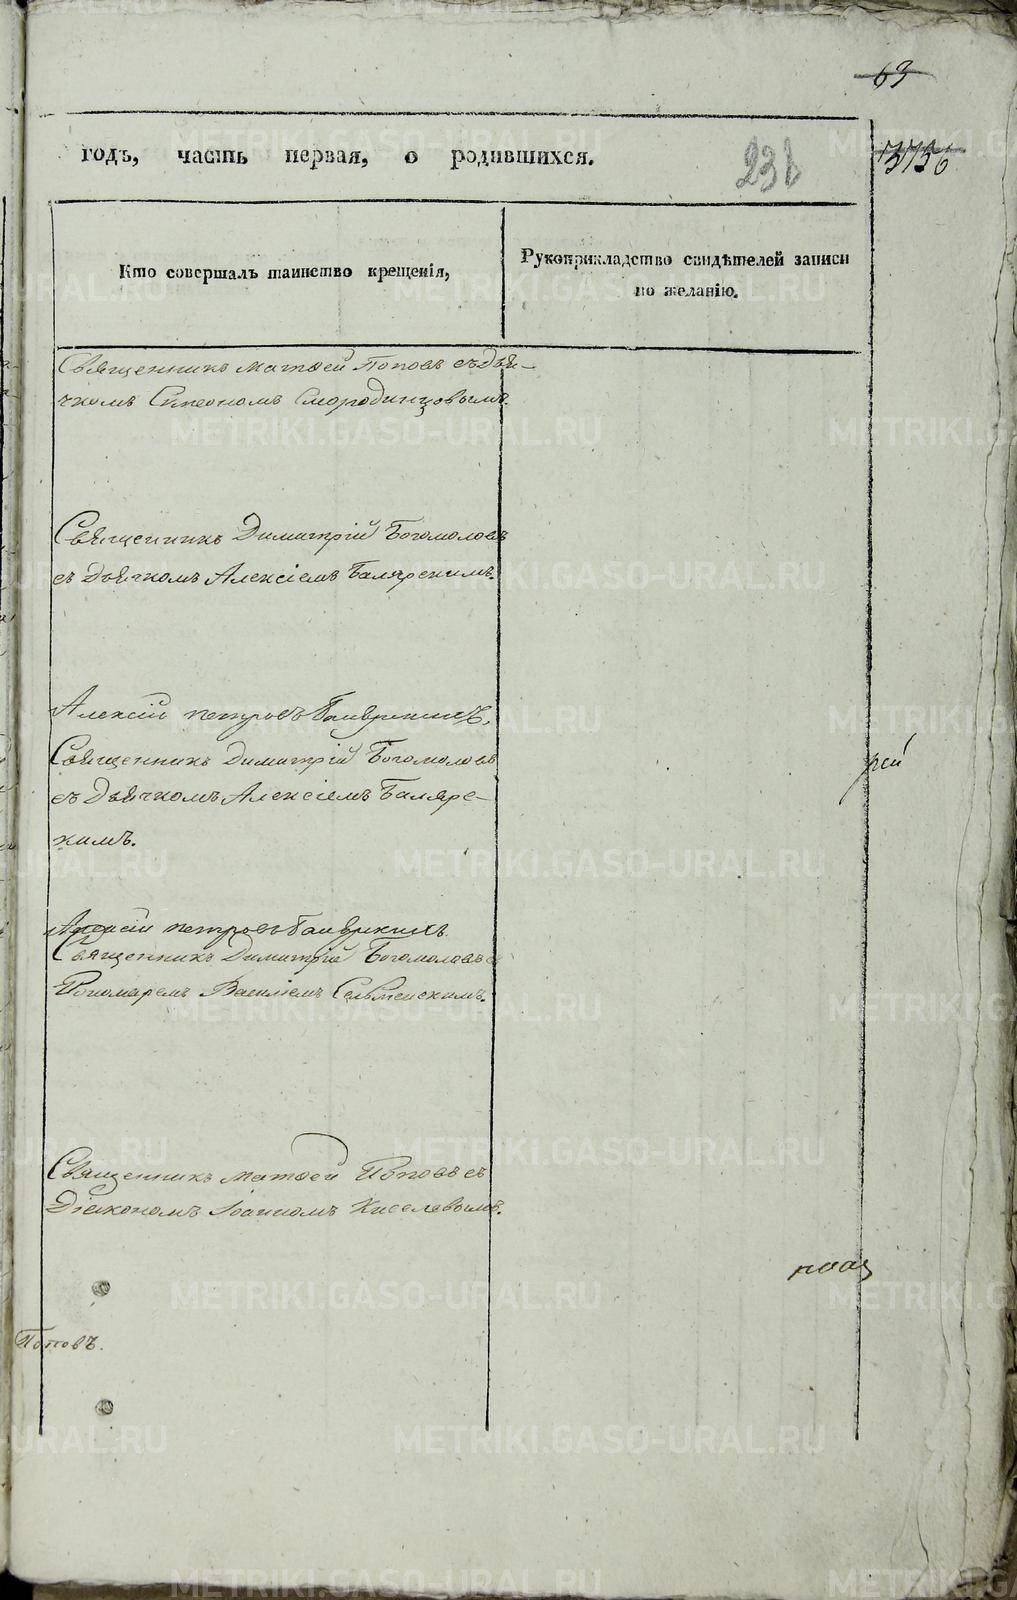 63
годъ, часть первая, о родившихся.
Кто совершалъ таинство крещенія,
Рукоприкладство свидѣтелей записи
по желанію.
Священникъ Матѳей Поповъ съ дья-
чкомъ Симеономъ Смородинцовымъ.
Священникъ Димитрій Богомоловъ
съ Дьячкомъ Алексіемъ Балярскимъ.
Алексій Петровъ
Священникъ Димитрій Богомоловъ
съ Дьячкомъ Алексіемъ Балярс-
кимъ.
рей
Алексій Петровъ
Священникъ Димитрій Богомоловъ с
Пономаремъ Василіемъ Сельменскимъ.
Священникъ Матѳей Поповъ съ
Діакономъ Іоанномъ Киселевымъ.
Поповъ.
METRIKI.GASO-URAL.RU